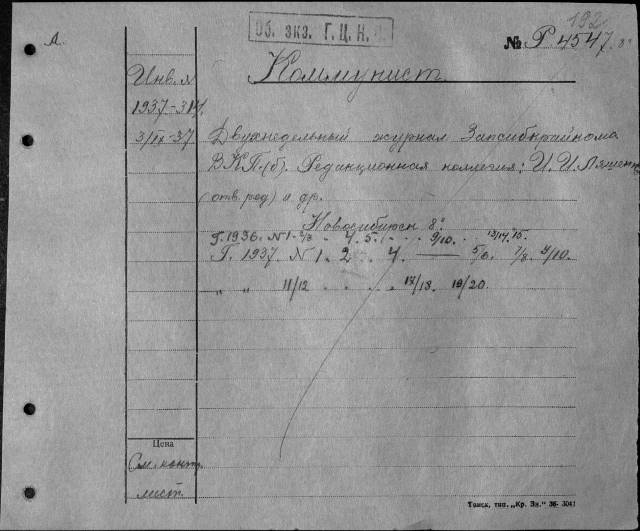 Об. экз. Г.Ц.К.
192
№ Р 4547. 8°
Д.
Инв. №
1937-314.
3/IX-37
Коммунист
Двухнедельный журнал Запсибкрайкома
ВКП(б). Редакционная коллегия: И. И. Ляшенко
(отв. ред) и др.
Новосибирск 8°.
Г. 1936. N 1-2/3. 4. 5. . . . 9/10. . . 13/14. 15.
Г. 1937. N 1. 2. . 4. — 5/6. 7/8. 9/10.
„ „ 11/12 . . . . . 17/18. 19/20.
Цена
См. конт.
лист.
Томск, тип. „Кр. Зн.“ 36- 3041